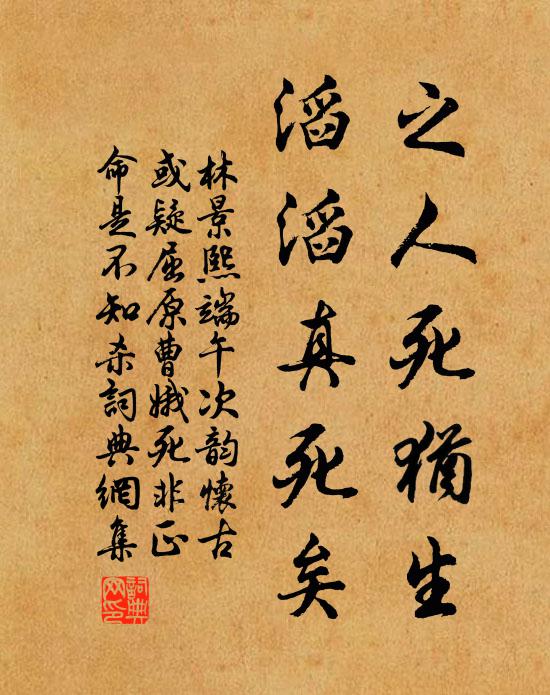 之人死猶生
滔滔真死矣
林景熙端午次韵懷古
或疑屈原曹娥死非正
命是不知杀詞典網集
詞典网印